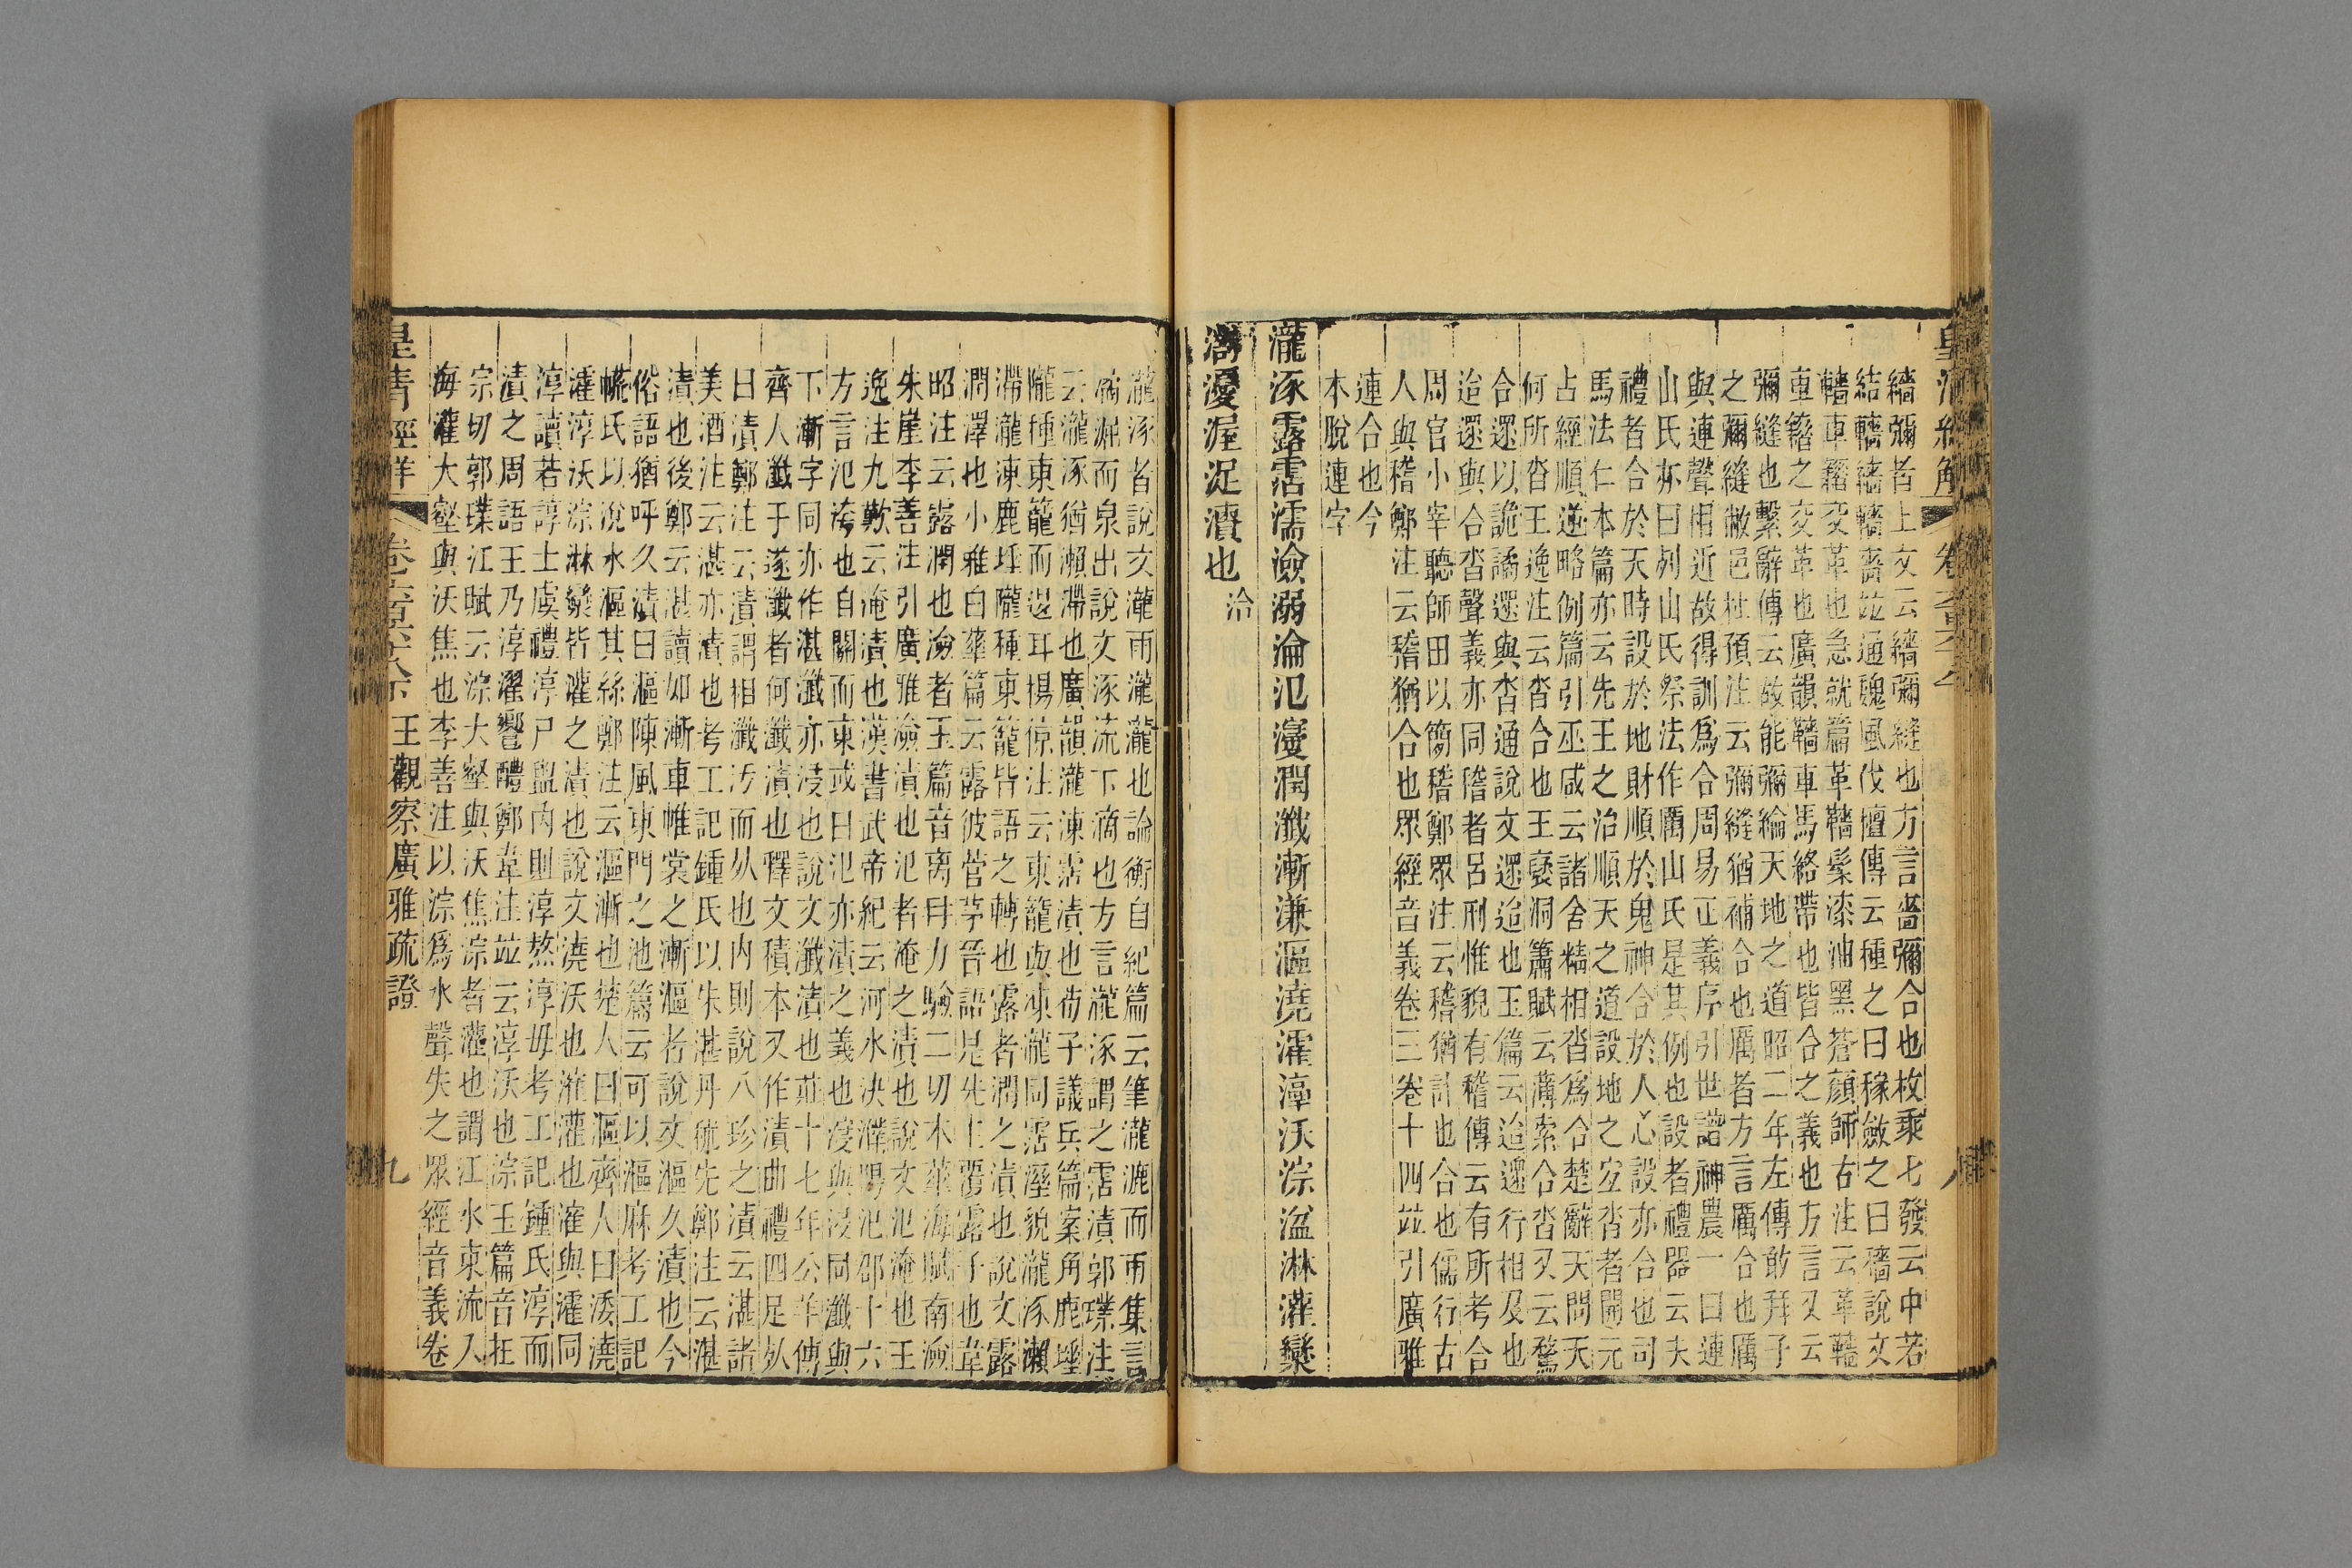 繬彌者上文云繬彌縫也方言嗇彌合也枚乘七發云中若
結轖繬轖嗇竝通魏風伐檀傳云種之曰稼斂之曰穡說文
轖車籍交革也急就篇革轖髹漆油黑蒼顏師古注云革轖
車籍之交革也廣韻轖車馬絡帶也皆合之義也方言又云
彌縫也繫辭傳云故能彌綸天地之道昭二年左傳敢拜子
之彌縫敝邑杜預注云彌縫猶補合也厲者方言厲合也厲
與連聲相近故得訓爲合周易正義序引世譜神農一曰連
山氏亦曰列山氏祭法作厲山氏是其例也設者禮器云夫
禮者合於天時設於地財順於鬼神合於人心設亦合也司
馬法仁本篇亦云先王之治順天之道設地之宜沓者開元
占經順逆略例篇引巫咸云諸舍精相沓爲合楚辭天問天
何所沓王逸注云沓合也王襃洞簫賦云薄索合沓又云騖
合遝以詭譎遝與沓通說文遝迨也玉篇云迨遝行相及也
迨遝與合沓聲義亦同稽者呂刑惟貌有稽傳云有所考合
周官小宰聽師田以簡稽鄭眾注云稽猶計也合也儒行古
人與稽鄭注云稽猶合也眾經音義卷三卷十四竝引廣雅
連合也今
本脫連字
瀧涿露霑濡澰溺淪氾濅潤瀸漸溓漚澆濢淳沃淙湓淋灌灓
澇瀀渥浞瀆也 洽
瀧涿者說文瀧雨瀧瀧也論衡自紀篇云筆瀧漉而雨集言
㵝淈而泉出說文涿流下滴也方言瀧涿謂之霑漬郭璞注
云瀧涿猶瀨滯也廣韻瀧涷霑漬也荀子議兵篇案角鹿埵
隴種東籠而退耳楊倞注云東籠與涷瀧同霑溼貌瀧涿瀨
滯瀧涷鹿埵隴種東籠皆語之轉也露者潤之漬也說文露
潤澤也小雅白華篇云露彼菅茅晉語是先主覆露子也韋
昭注云露潤也澰者玉篇音离冉力驗二切木華海賦南澰
朱崖李善注引廣雅澰漬也氾者淹之漬也說文氾淹也王
逸注九歎云淹漬也漢書武帝紀云河水決濮陽氾郡十六
方言氾洿也自關而東或曰氾亦漬之義也濅與浸同瀸與
下漸字同亦作湛瀸亦浸也說文瀸漬也莊十七年公羊傳
齊人瀸于遂瀸者何瀸漬也釋文積本又作漬曲禮四足死
曰漬鄭注云漬謂相瀸汚而死也內則說八珍之漬云湛諸
美酒注云湛亦漬也考工記鍾氏以朱湛丹秫先鄭注云湛
漬也後鄭云湛讀如漸車帷裳之漸漚者說文漚久漬也今
俗語猶呼久漬曰漚陳風東門之池篇云可以漚麻考工記
㡛氏以涗水漚其絲鄭注云漚漸也楚人曰漚齊人曰涹澆
濢淳沃淙淋灓皆灌之漬也說文澆沃也漼灌也漼與濢同
淳讀若諄士虞禮淳尸盥內則淳熬淳毋考工記鍾氏淳而
漬之周語王乃淳濯饗醴鄭韋注竝云淳沃也淙玉篇音在
宗切郭璞江賦云淙大壑與沃焦淙者灌也謂江水東流入
海灌大壑與沃焦也李善注以淙爲水聲失之眾經音義卷
皇清經解 卷六百六十八下 王觀察廣雅疏證 九